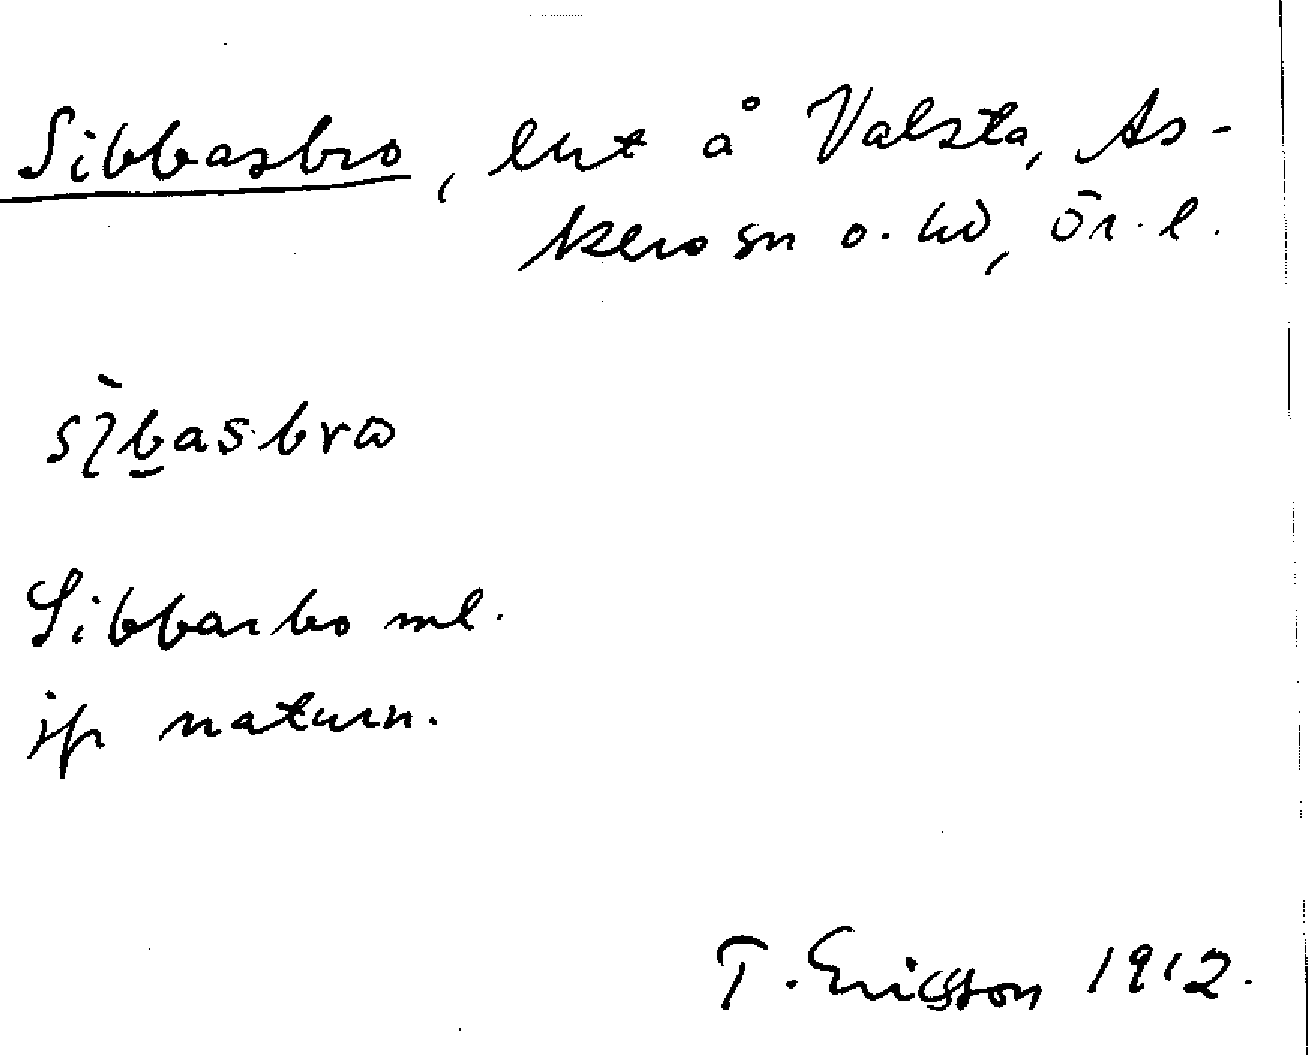 Sibbasbro, lht å Valsta, As-
kers sn o. hd, Ör. l.
Sibbarbo ml.
jfr naturn.
T. Ericsson 1912.